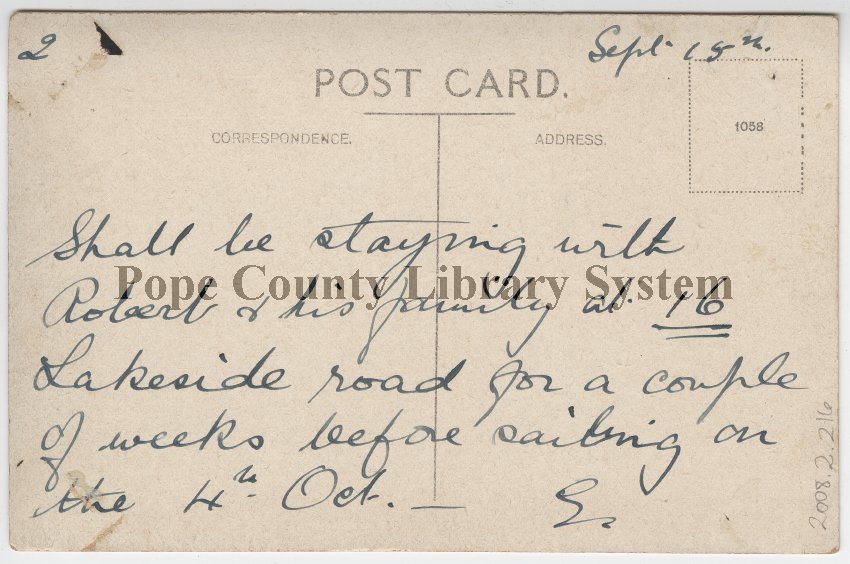 2
Sept 15th.
POST CARD.
CORRESPONDENCE.
ADDRESS.
1058
Shall be staying with
Robert & his family at 16
Lakeside road for a couple
of weeks before sailing on
the 4th Oct. —
Pope County Library System
2008.2.216